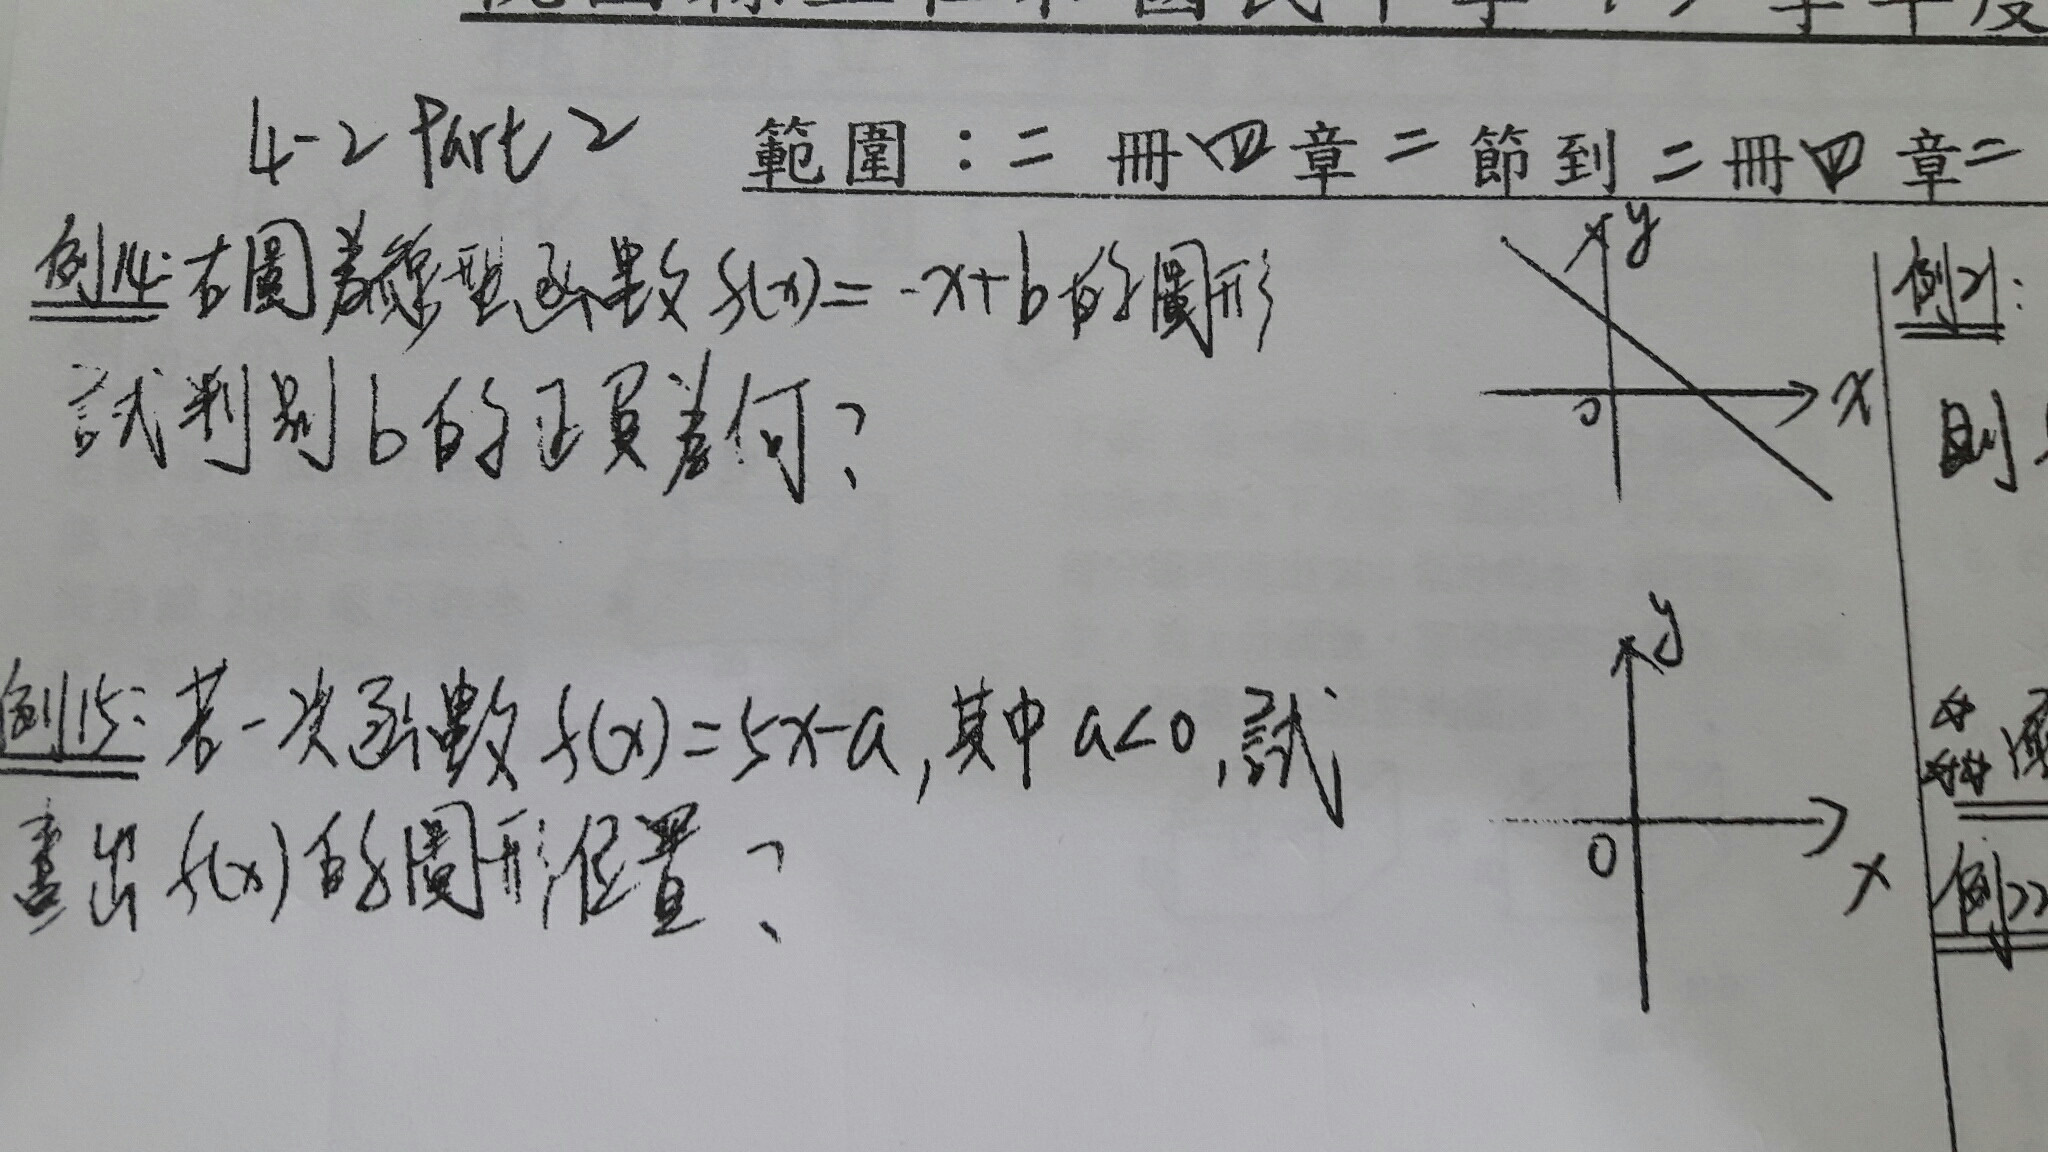 4-2 Part 2
範圍：二冊四章二節到二冊四章二
例14: 右圖為線型函數 f(x)= -x+b 的圖形
試判別 b 的正負為何?
y
x
0
例21:
則
例15: 若一次函數 f(x)=5x-a, 其中 a<0, 試
畫出 f(x) 的圖形位置?
y
0
x
例22